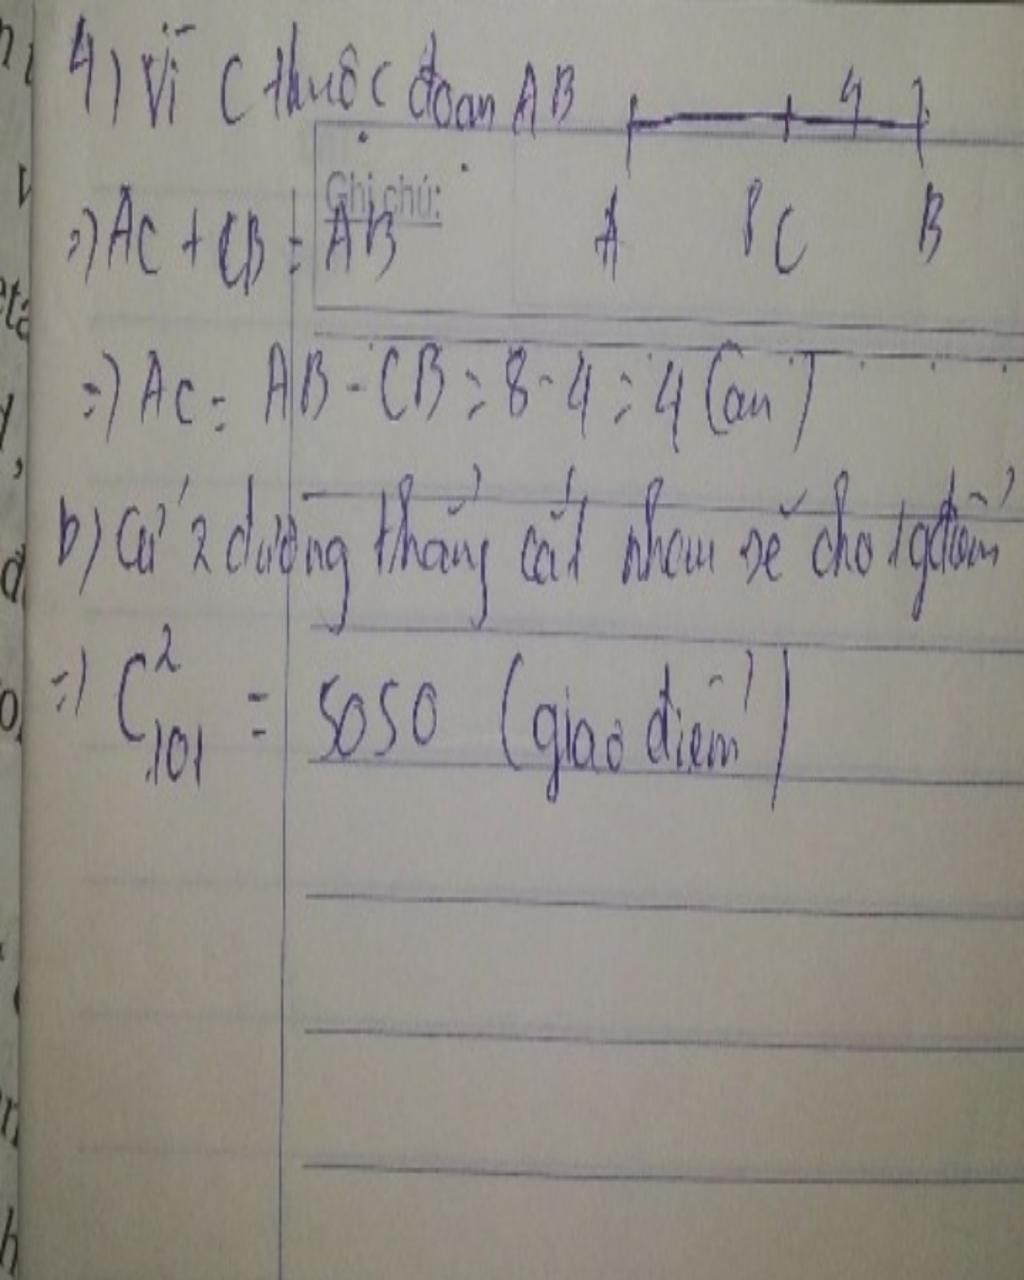 4) Vì C thuộc đoạn AB
4
Ghi chú:
=) AC + CB = AB
A 8 C B
=) AC = AB - CB = 8 - 4 = 4 (cm)
b) Cứ 2 đường thẳng cắt nhau sẽ cho 1 gđiểm
=) C²₁₀₁ = 5050 (giao điểm)